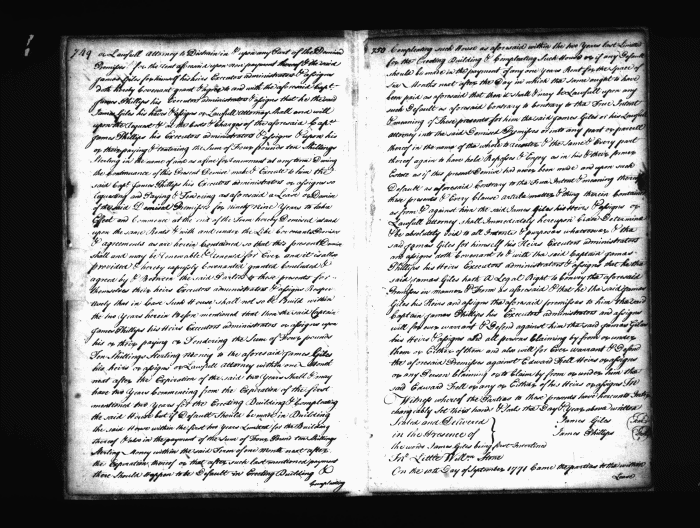 749 or Lawfull attorney to Distrain in & upon any Part of the Demised
Premises for the rent aforesaid upon non payment thereof & the said
James Giles for himself his heirs Executors administrators & assigns
Doth hereby Covenant grant & agree to and with the aforesaid Capt.
James Phillips his Executors administrators & assigns that he the said
James Giles his heirs & assigns or Lawfull attorney shall and will
upon the request & at the Costs & charges of the aforesaid Capt.
James Phillips his Executors administrators & assigns & upon his
or their paying & tendering the Sum of Four pounds ten Shillings
Sterling in the name of and as a fine for renewment at any time During
the Continuance of this Present Demise make & Execute to him the
said Capt James Phillips his Executors administrators or assigns so
requesting and Paying & Tendering as aforesaid a Lease or Demise
of the said Demised Premises for ninety Nine Years to take
Effect and Commence at the end of the Term hereby Demised at and
upon the same Rents & with and under the Like Covenants Provisoes
& agreements as are herein Contained so that this present Demise
shall and may be renewable & renewed for Ever and it is also
provided & hereby expressly Covenanted granted Concluded &
agreed by & between the said Parties to these presents for
themselves their heirs Executors administrators & assigns Respec-
tively that in Case Such House shall not so be Build within
the two Years herein Before mentioned that then the said Captain
James Phillips his heirs Executors administrators or assigns upon
his or their paying or Tendering the Sum of Four pounds
Ten Shillings Sterling money to the aforesaid James Giles
his heirs or assigns or Lawfull attorney within one Month
next after the Expiration of the said two Years Shall & may
have two Years Commencing from the Expiration of the first
mentioned two Years for the Erecting Building & Compleating
the said House but if Default Should be made in Building
the said House within the first two Years Limited for the Building
thereof & also in the payment of the Sum of Four Pound ten Shillings
Sterling Money within the said Term of one Month next after
the Expiration thereof or that after such last mentioned payment
there should happen to be Default in Erecting Building &
Compleating
750 Compleating such House as aforesaid within the two Years last Limited
for the Erecting Building & Compleating Such House or if any Default
should be made in the payment of any one Years Rent for the Space of
Six Months next after the Day in which the same ought to have
been paid as aforesaid that then it shall & may be Lawfull upon any
such Default as aforesaid Contrary to the True Intent
& meaning of these presents for him the said James Giles or his Lawfull
attorney into the said Demised Premises or into any part or parcell
thereof in the name of the whole to reenter & the Same & Every part
thereof again to have hold Repossess & Enjoy as in his & their former
Estate as if this present Demise had never been made and upon such
Default as aforesaid Contrary to the True Intent & meaning thereof
these presents & Every Clause article matter & thing therein Contained
as from & against him the said James Giles his Heirs & assigns or
Lawfull attorney shall Immediately thereupon Cease Determine
& be absolutely Void to all Intents & purposes whatsoever & the
said James Giles for himself his Heirs Executors administrators
and assigns doth Covenant to & with the said Captain James
Phillips his Heirs Executors administrators & assigns that he the
said James Giles hath a Legal Right to Convey the aforesaid
Premises in manner & Form as aforesaid & that he the said James
Giles his Heirs and assigns the aforesaid premises to him the said
Captain James Phillips his Executors administrators and assigns
will for ever warrant & Defend against him the said James Giles
his Heirs & assigns and all persons Claiming by from or under
them or Either of them and also will for Ever warrant & Defend
the aforesaid Premises against Edward Hall Heirs or assigns
or any Person Claiming or to Claim by from or under him the
said Edward Hall or any or Either of his Heirs or assigns In
Witness whereof the Parties to these presents have hereunto Inter-
changeably Set their hands & Seals the Day & Year above written
Sealed and Delivered
in the Presence of
the words James Giles being first Interlined
James Giles (Seal)
James Phillips (Seal)
Jos. Little Willm. Stone
On the 10th Day of September 1771 Came the parties to the within
Lease